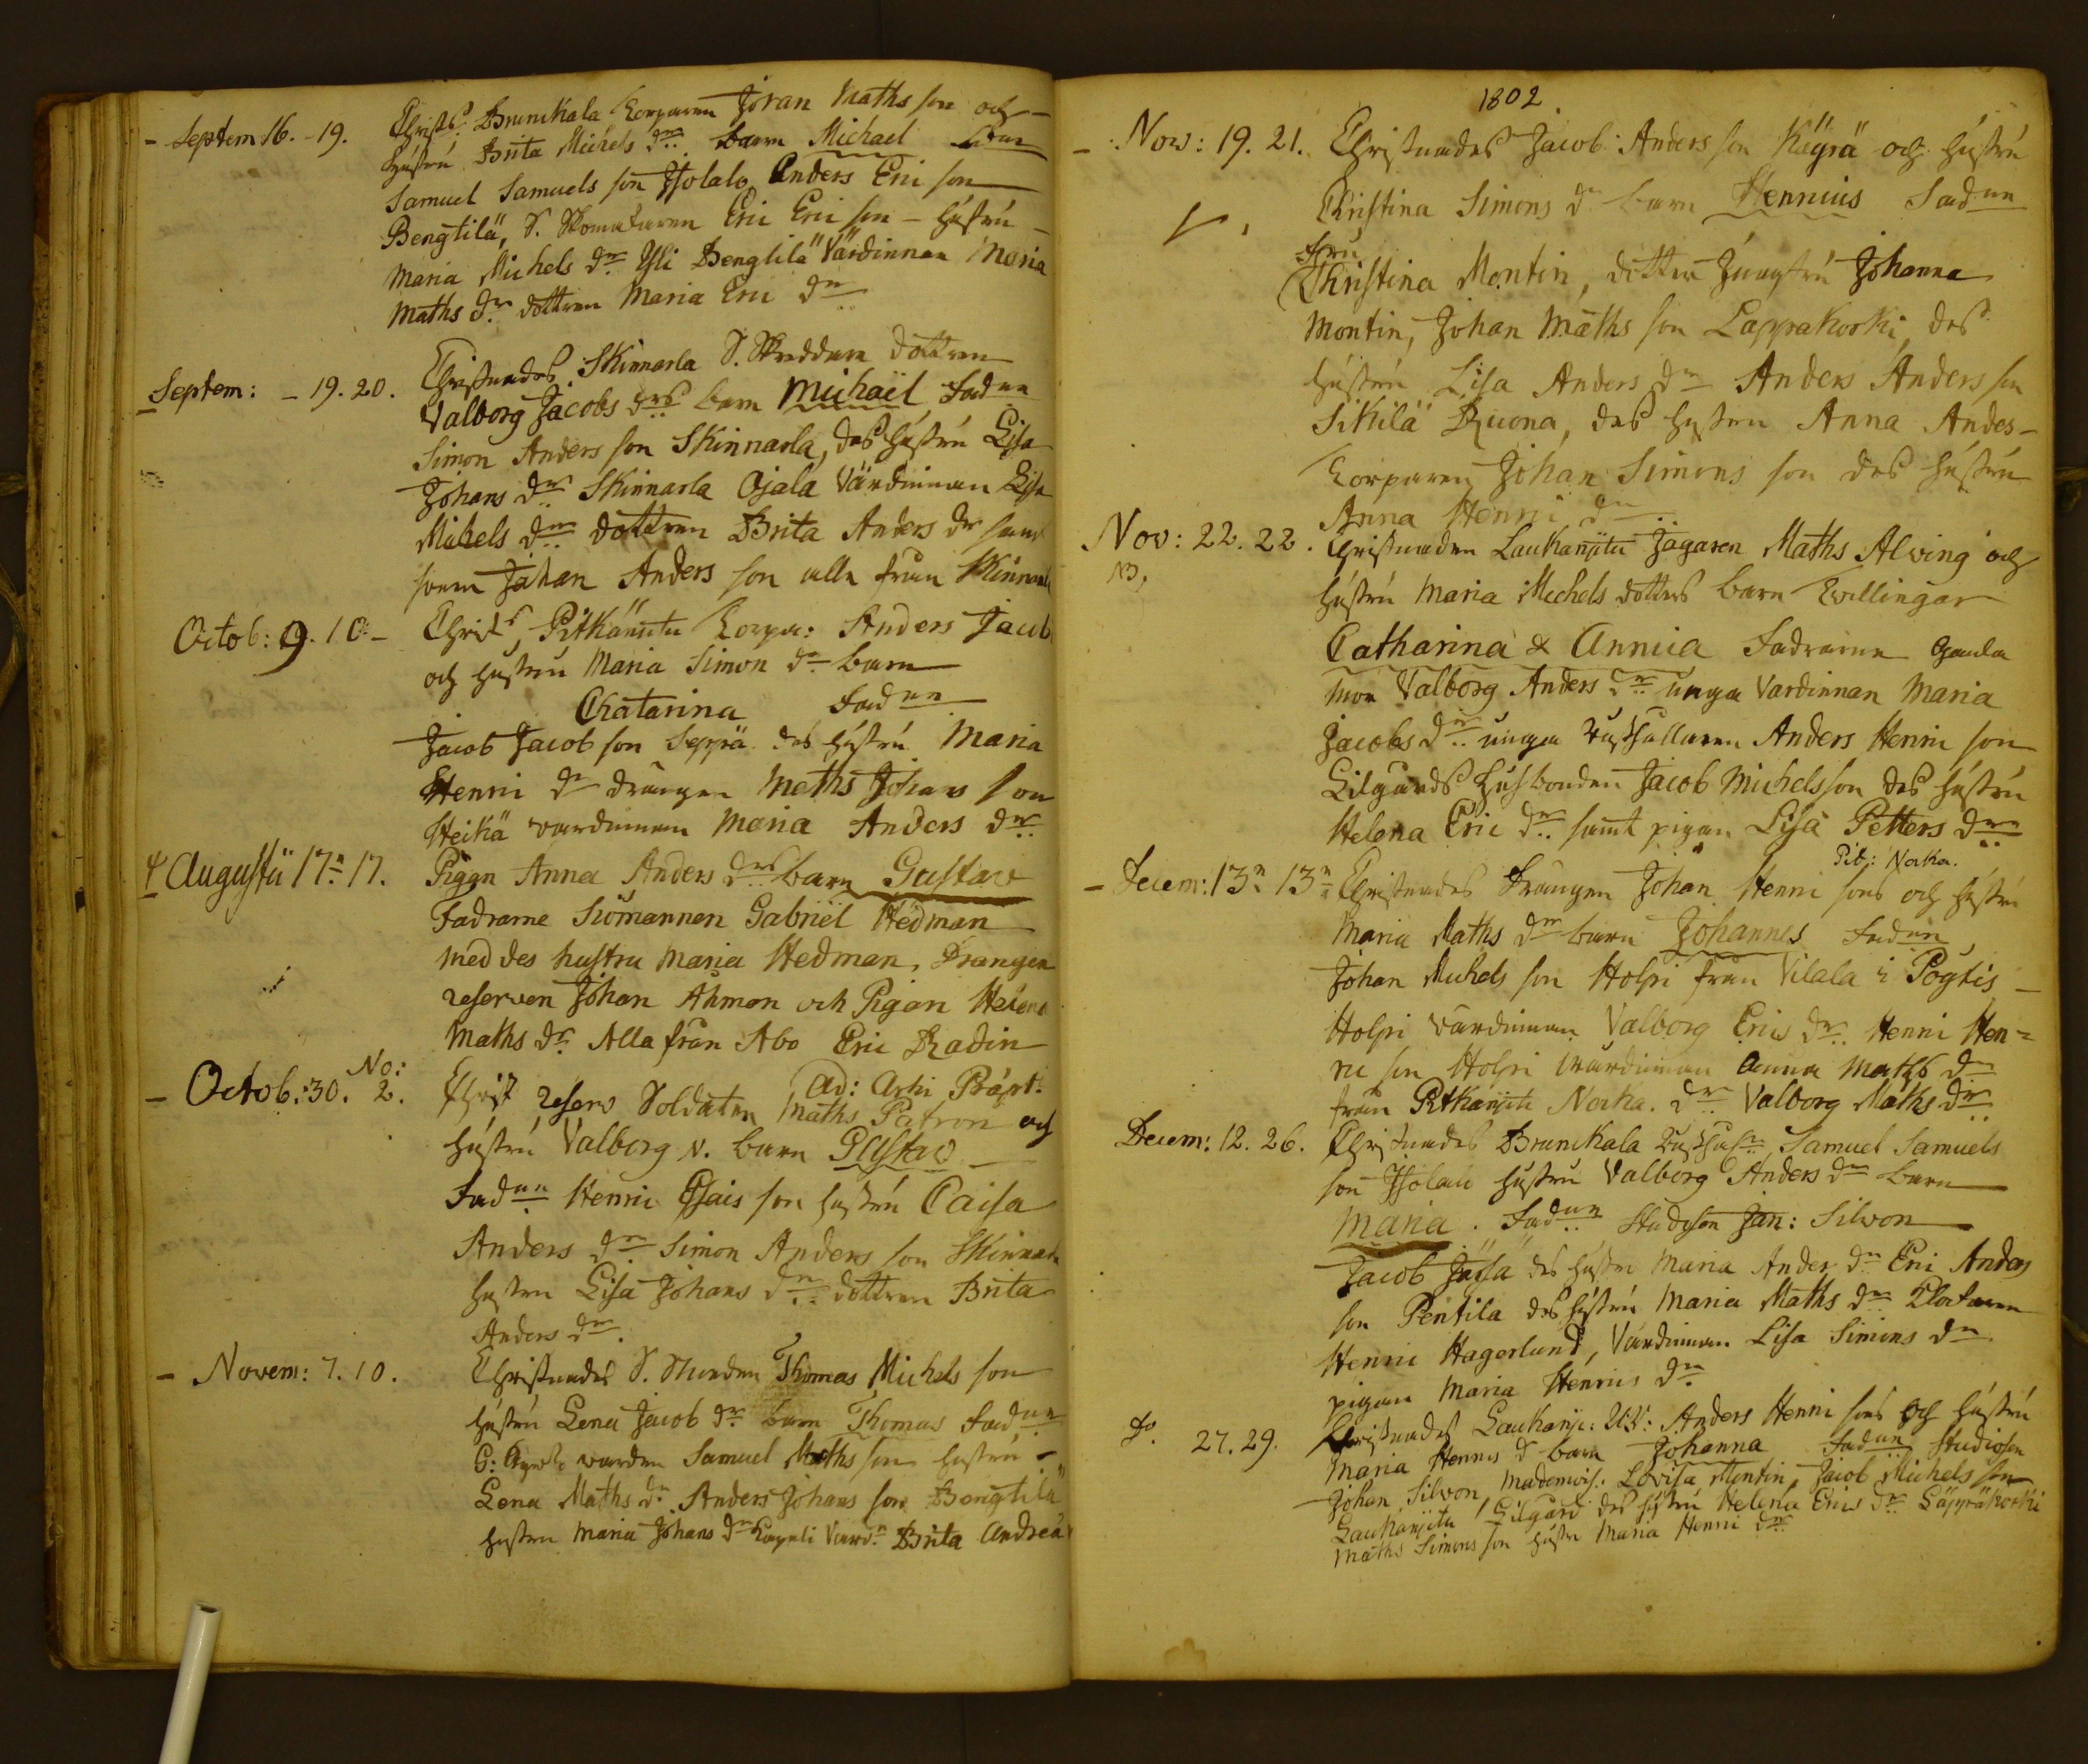 - Septem 16. - 19. Christ: Brunikala Torparen Jöran Maths son och
hustru Brita Michels dr. barn Michael
Samuel Samuels son Isolalo Anders Eric son
Bengtilä, S. Skomakaren Eric Eric son - hustru
Maria Michels dr. Yli Bengtilä Värdinnan Maria
Maths dr. dottren Maria Eric dr
Septem: - 19. 20. Christnades Skinnarla S. Skreddare dottren
Valborg Jacobs drs barn Michaël Fadrar
Simon Anders son Skinnarla, des hustru Lisa
Johans dr. Skinnarla Ojala Värdinnan Lisa
Michels dr. dottren Brita Anders dr samt
Johan Anders son alla från Skinnarla
Octob: 9. 10 - Christ: Pitkänjitu Torpa: Anders Jacob
och hustru Maria Simon dr barn
Chatarina Fadrar
Jacob Jacob son Seppä des hustru Maria
Henric dr drängen Maths Johans son
Heikä värdinnan Maria Anders dr.
Augusti 17n 17. Pigan Anna Anders drs barn Gustav
Fadrarne Siömannen Gabriel Hedman
med des hustru Maria Hedman, Drängen
reserven Johan Åhman och Pigan Helena
Maths dr. Alla från Åbo Eric Radin
No: Ad:
- Octob: 30. 2. Christ reserv Soldaten Maths Patron och
hustru Valborg barn Gustav
Fadrar Henric Esais son hustru Caisa
Anders dr Simon Anders son Skinnarla
hustru Lisa Johans dr. dottren Brita
Anders dr.
- Novem: 7. 10. Christnades S. Thomas Michels son
hustru Lena Jacob dr barn Thomas Fadrar
Samuel Maths son hustru
Lena Maths dr. Anders Johans son Bengtilä
hustru Maria Johans dr Värd. Brita Andreæ
1802
- Nov: 19. 21. Christnades Jacob Anders son Käyrä och hustru
Christina Simons dr barn Hennius Fadrar
Fru
Christina Montin, dotter Jungfru Johanna
Montin, Johan Maths son Lappakoski, des
hustru Lisa Anders dr Anders Anders son
Sikilä Ruona, des hustru Anna Andes-
Torparen Johan Simons son des hustru
Anna Henric dr
Nov: 22. 22. Christnades Laukanjitu Jägaren Maths Alving och
NB, hustru Maria Michels dotters barn Tvillingar
Catharina & Annica Fadrarne gamla
mor Valborg Anders dr. unga Värdinnan Maria
Jacobs dr. unga Rusthållaren Anders Henric son
Lilgårds husbonden Jacob Michelsson des hustru
Helena Eric dr. samt pigan Lisa Petters dr.
Pit: Nocka.
- Decem: 13n 13n Christnades Drängen Johan Henric sons och hustru
Maria Maths dr barn Johannes Fadrar
Johan Michels son Holpi från Vilala i Pöytis
Holpi värdinnan Valborg Erics dr. Henric Hen=
ric son Holpi värdinnan Anna Maths dr
från Pitkänjitu Nocka. dr. Valborg Maths dr.
Decem: 12. 26. Christnades Brunikala Rusth. Samuel Samuels
son Isolalo hustru Valborg Anders dr barn
Maria. Fadrar Studiosen Jan: Silvon
Jacob Jässä des hustru Maria Anders dr Eric Anders
son Pentila des hustru Maria Maths dr
Henric Hagerlund, Värdinnan Lisa Simons dr
pigan Maria Henrics dr
Do 27. 29. Christnades Laukanji: Anders Henric sons och hustru
Maria Henrics dr barn Johanna Fadrar Studiosen
Johan Silvon, Mademois. Lovisa Montin, Jacob Michels son
Laukanjitu Lilgård des hustru Helena Erics dr Läppäkoski
Maths Simons son hustru Maria Henric dr